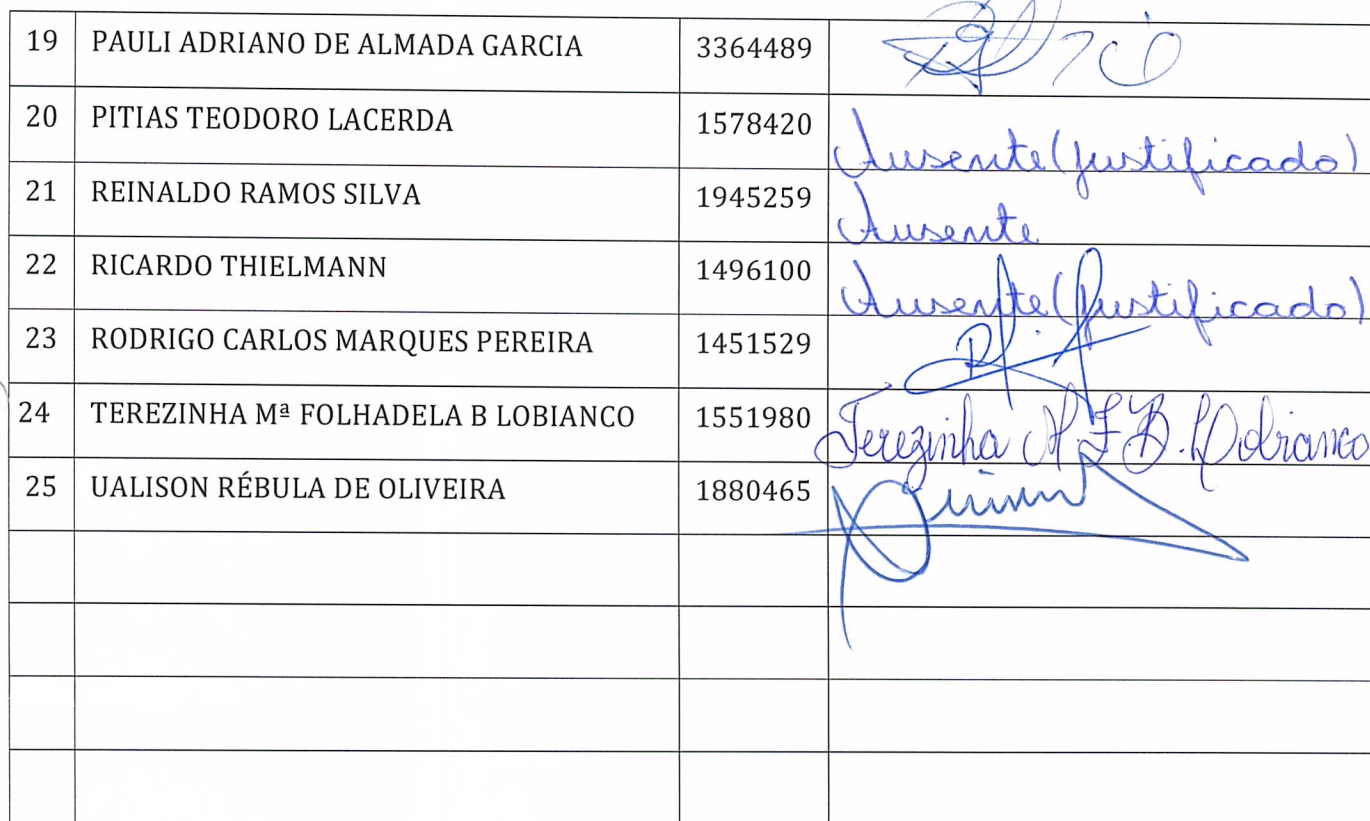 19 PAULI ADRIANO DE ALMADA GARCIA 3364489
20 PITIAS TEODORO LACERDA 1578420 Ausente (justificado)
21 REINALDO RAMOS SILVA 1945259 Ausente
22 RICARDO THIELMANN 1496100 Ausente (justificado)
23 RODRIGO CARLOS MARQUES PEREIRA 1451529
24 TEREZINHA Mª FOLHADELA B LOBIANCO 1551980 Terezinha M. F. B. Lobianco
25 UALISON RÉBULA DE OLIVEIRA 1880465